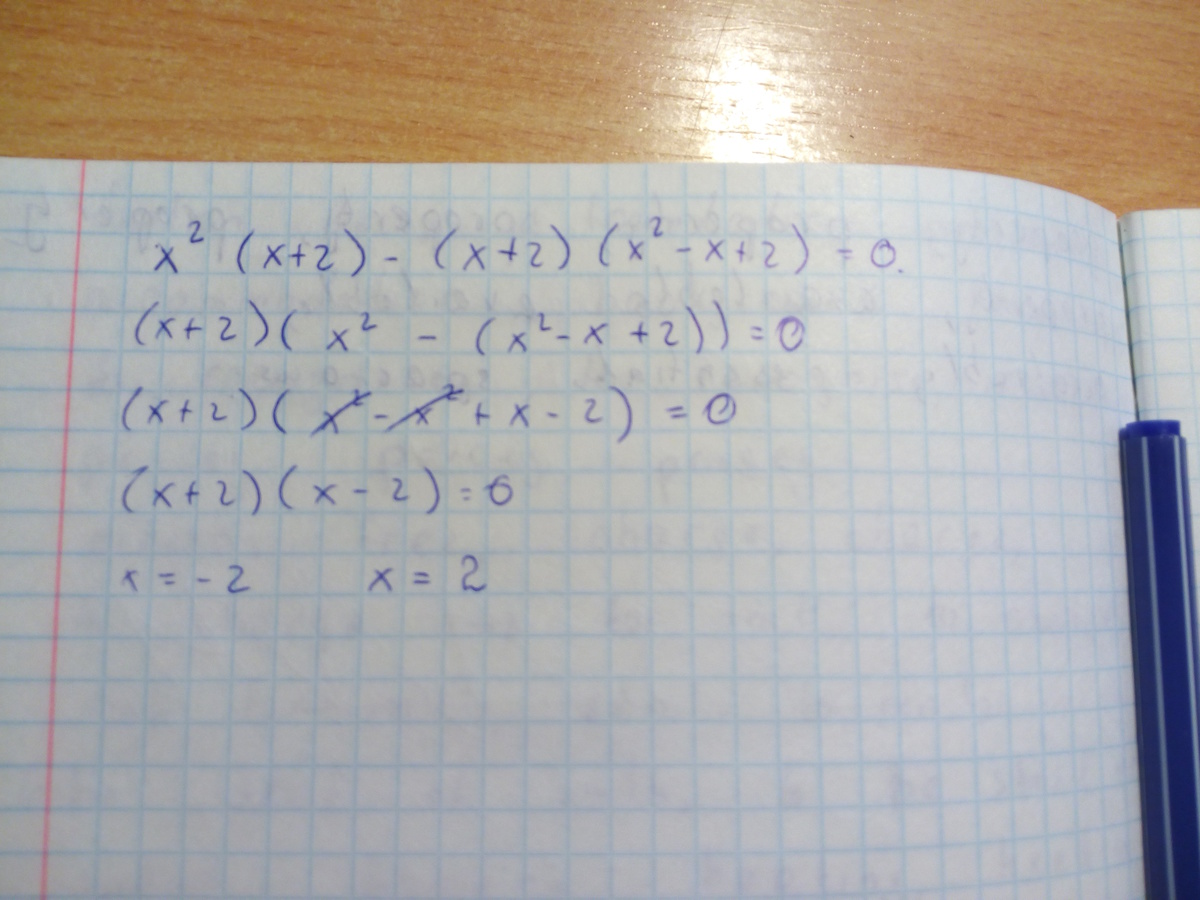 x² (x+2) - (x+2) (x² - x+2) = 0.
(x+2)( x² - (x² - x +2)) = 0
(x+2)( x² - x² + x - 2) = 0
(x+2)( x - 2) = 0
x = - 2 x = 2